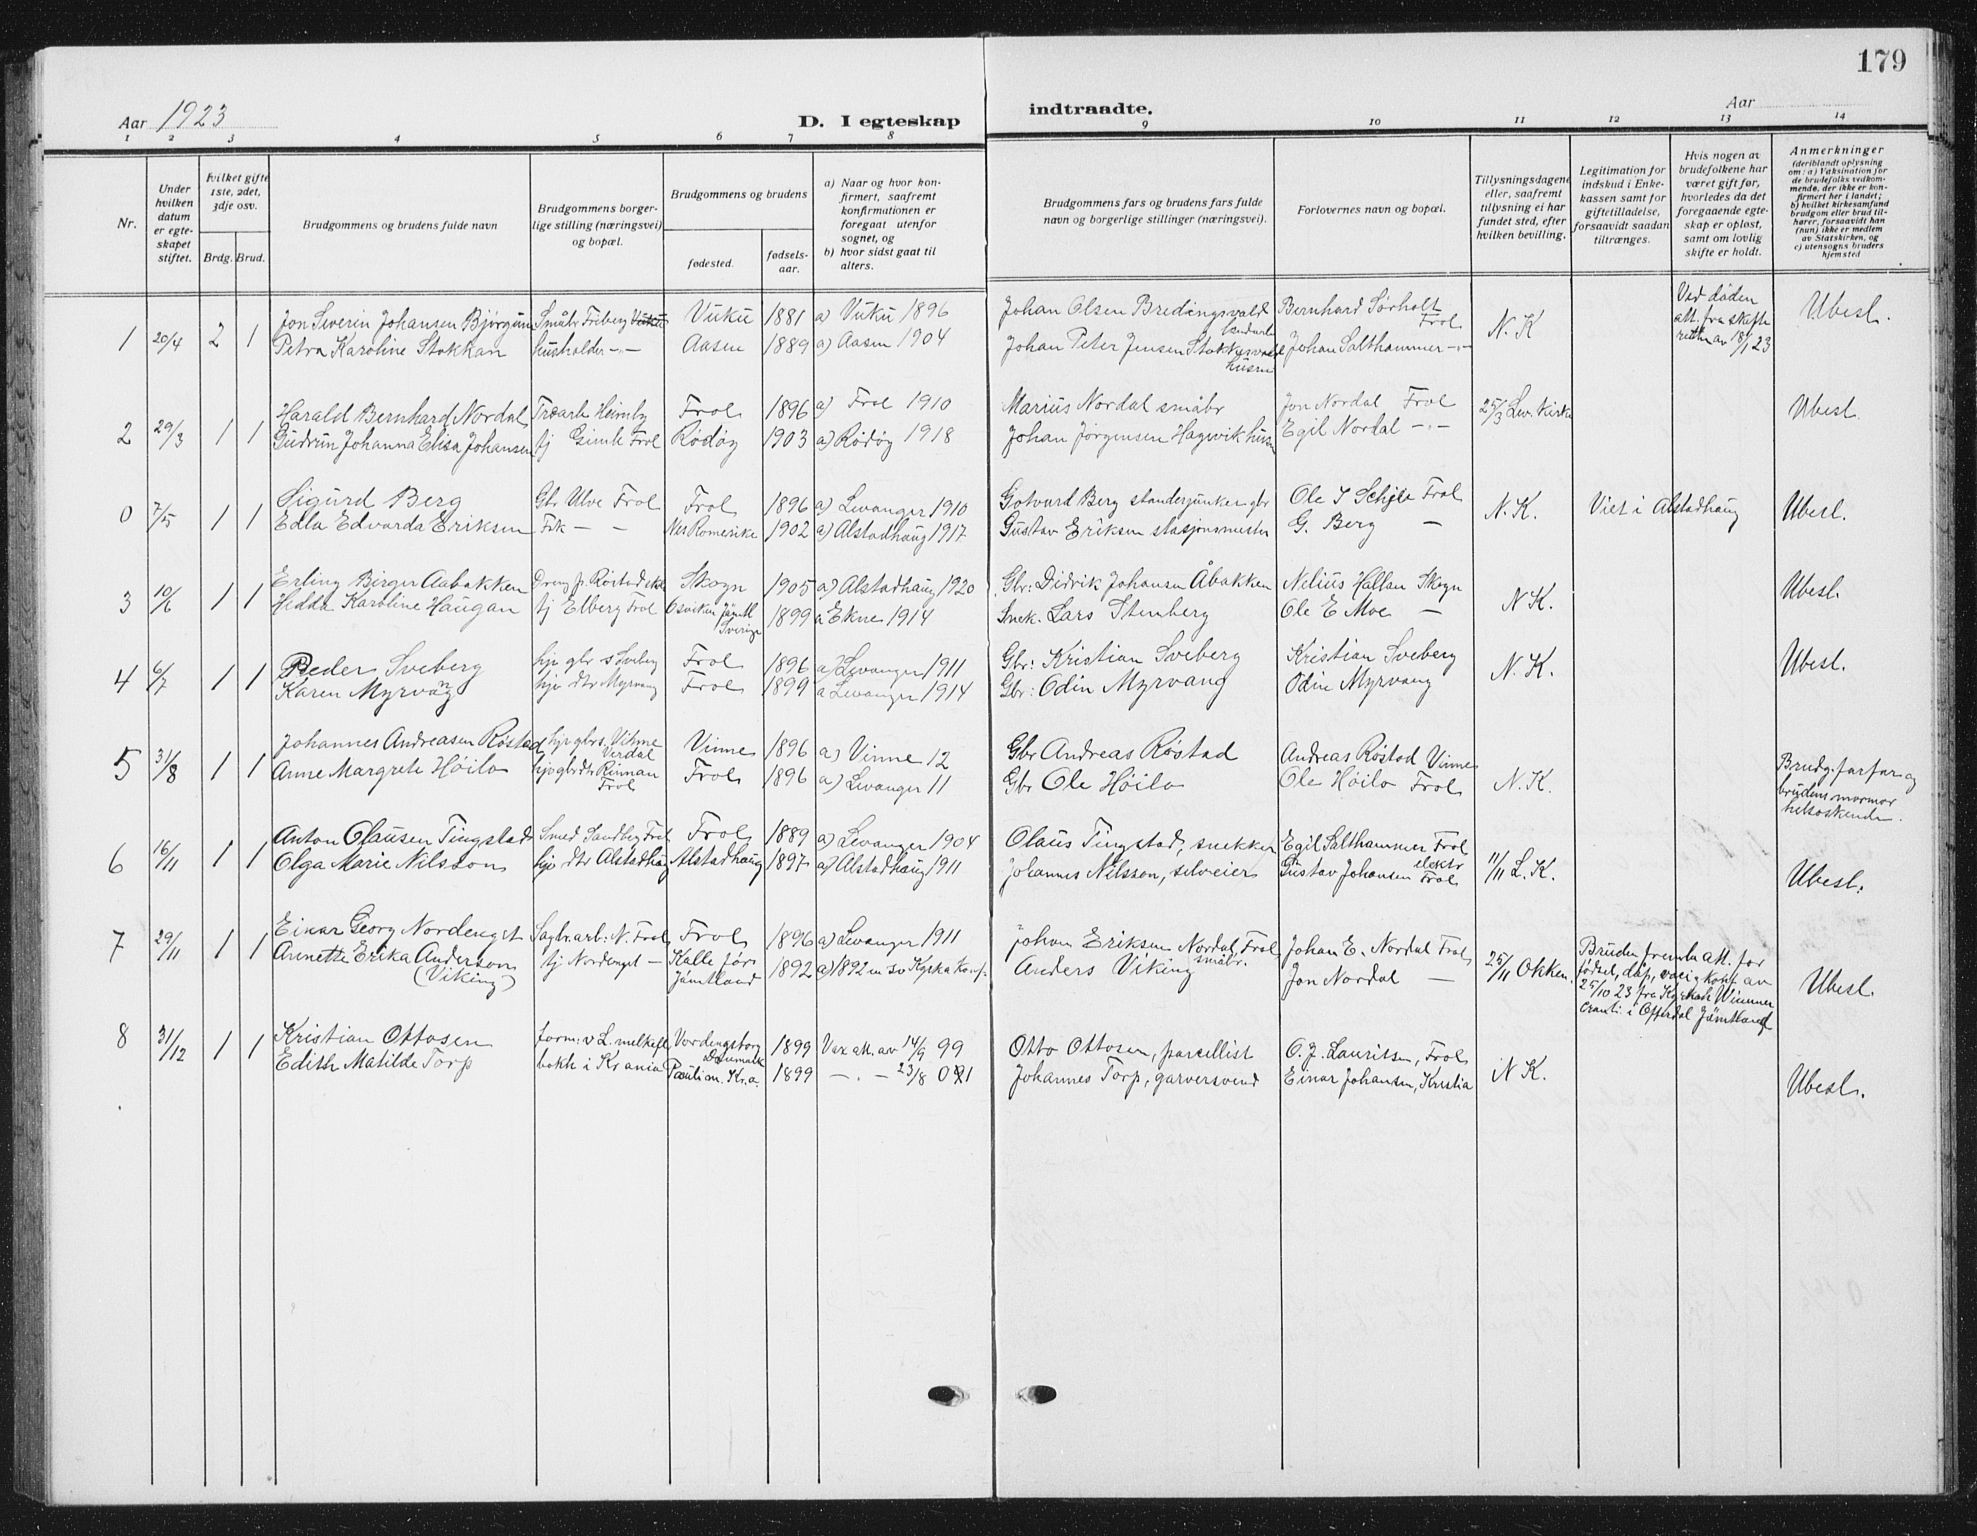 179
Aar 1923
D. I egteskap
indtraadte.
Aar
1 2 3 4 5 6 7 8 9 10 11 12 13 14
Nr.
Under hvilken datum er egteskapet stiftet.
Hvilket gifte 1ste, 2det, 3dje osv.
Brdg. Brud.
Brudgommens og brudens fulde navn
Brudgommens borgerlige stilling (næringsvei) og bopæl.
Brudgommens og brudens
fødested.
fødselsaar.
a) Naar og hvor konfirmert, saafremt konfirmationen er foregaat utenfor sognet, og
b) hvor sidst gaat til alters.
Brudgommens fars og brudens fars fulde navn og borgerlige stillinger (næringsvei).
Forlovernes navn og bopæl.
Tillysningsdagene eller, saafremt tillysning ei har fundet sted, efter hvilken bevilling.
Legitimation for indskud i Enkekassen samt for giftetilladelse, forsaavidt saadan tiltrænges.
Hvis nogen av brudefolkene har været gift før, hvorledes da det foregaaende egteskap er opløst, samt om lovlig skifte er holdt.
Anmerkninger
(deriblandt oplysning om: a) Vaksination for de brudefolks vedkommende, der ikke er konfirmert her i landet;
b) hvilket kirkesamfund brudgom eller brud tilhører, forsaavidt han (hun) ikke er medlem av Statskirken, og
c) utensogns bruders hjemsted
1 20/4 2 1 Jon Severin Johansen Bjørgum Småbr. Friberg Vuku Vuku 1881 a) Vuku 1896 Johan Olsen Bredingsvald Bernhard Sørholt Frol N.K Ved døden att. fra skifteretten av 18/1 23 Ubesl.
Petra Karoline Stokkan husholder -"- Aasen 1889 a) Aasen 1904 Johan Peter Jensen husm Johan Salthammer -"-
2 29/3 1 1 Harald Bernhard Nordal Træarb Heimly Frol 1896 a) Frol 1910 Marius Nordal småbr Jon Nordal Frol 25/3 Lev. Kirke Ubesl.
Gudrun Johanna Elisa Johansen tj Gimle Frol Rødøy 1903 a) Rödöy 1918 Johan Jørgensen Hagevik husm Egil Nordal -"-
0 7/5 1 1 Sigurd Berg Gbr Ulve Frol Frol 1896 a) Levanger 1910 Gotvard Berg standerjunker gbr Ole J Schjei Frol N.K. Viet i Alstadhaug Ubesl.
Edla Edvarda Eriksen Frk — — Nes Romerike 1902 a) Alstadhaug 1917 Gustav Eriksen stasjonsmester G. Berg —
3 10/6 1 1 Erling Birger Aabakken Dreng p. Røstad skole Skogn 1905 a) Alstadhaug 1920 Gbr: Didrik Johansen Åbakken Nelius Hallan Skogn N.K. Ubesl.
Hedda Karoline Haugan tj Elberg Frol Osviken Jämtl Sverige 1899 a Ekne 1914 Snek. Lars Stenberg Ole E Moe —
4 6/7 1 1 Peder Sveberg hjv gbr s Sveberg Frol 1896 a) Levanger 1911 Gbr: Kristian Sveberg Kristian Sveberg N.K. Ubesl.
Karen Myrvang hjv dtr Myrvang Frol 1899 a Levanger 1914 Gbr: Odin Myrvang Odin Myrvang
5 31/8 1 1 Johannes Andreasen Røstad hjv gbrs. Vinne Verdal Vinne 1896 a) Vinne 12 Gbr Andreas Røstad Andreas Røstad Vinne N.K. Brudg. farfar og brudens mormor helsøskende.
Anne Margrete Höilo hjv gbr dtr Rinnan Frol Frol 1896 a) Levanger 11 Gbr Ole Höilo Ole Höilo Frol
6 16/11 1 1 Anton Olausen Tingstad Smed Sandberg Frol Frol 1889 a) Levanger 1904 Olaus Tingstad, snekker Egil Salthammer Frol 11/11 L.K. Ubesl.
Olga Marie Nilsson hjv dtr Alstadhaug Alstadhaug 1897 a) Alstadhaug 1911 Johannes Nilsson, selveier Gustav Johansen elektr Frol
7 29/11 1 1 Einar Georg Nordenget Sagbr. arb. N. Frol Frol 1896 a) Levanger 1911 Johan Eriksen Nordal, Frol småbr. Johan E. Nordal Frol 25/11 Okken. Bruden fremla att. for fødsel, dåp, vac. og konf. av 25/10 23 fra i Offerdal Jämtland Ubesl.
Annette Erika Anderson (Viking) tj Nordenget — Kalle Jämtland 1892 a) 1892 Anders Viking Jon Nordal —
8 31/12 1 1 Kristian Ottosen form: v L. melkefb Vordengborg Danmark 1899 Vax att. av 14/9 99 Otto Ottosen, parcellist O. J. Lauritsen, Frol N K. Ubesl.
Edith Matilde Torp bokh i Kr ania Paulimn. Kr.a. 1899 —"— 23/8 01 Johannes Torp, garversvend Einar Johansen, Kristia